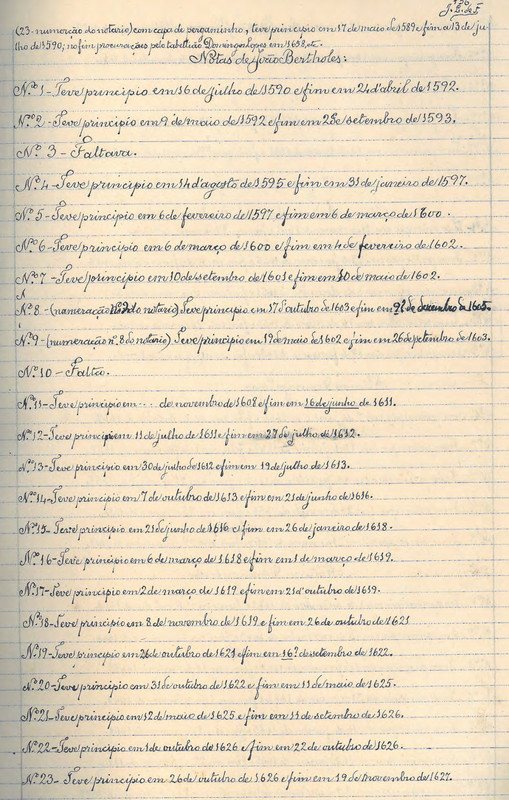 (23-numeração do notario) com capa de pergaminho, teve principio em 17 de maio de 1589 e fim a 13 de ju-
lho de 1590; no fim procurações pelo tabelião Domingos Lopes em 1638, etc.
Notas de João Bertholes:
Nº 1 - Teve principio em 16 de julho de 1590 e fim em 24 d'abril de 1592.
Nº 2 - Teve principio em 9 de maio de 1592 e fim em 28 de setembro de 1593.
Nº 3 - Faltava.
Nº 4 - Teve principio em 14 d'agosto de 1595 e fim em 31 de janeiro de 1597.
Nº 5 - Teve principio em 6 de fevereiro de 1597 e fim em 6 de março de 1600.
Nº 6 - Teve principio em 6 de março de 1600 e fim em 4 de fevereiro de 1602.
Nº 7 - Teve principio em 10 de setembro de 1601 e fim em 10 de maio de 1602.
Nº 8 - (numeração do notario) Teve principio em 17 d'outubro de 1603 e fim em de dezembro de 1605.
Nº 9 - (numeração n. 8 do notario) Teve principio em 19 de maio de 1602 e fim em 26 de setembro de 1603.
Nº 10 - Falta.
Nº 11 - Teve principio em .... de novembro de 1608 e fim em 16 de junho de 1611.
Nº 12 - Teve principio em 11 de julho de 1611 e fim em 27 de julho de 1612.
Nº 13 - Teve principio em 30 de julho de 1612 e fim em 19 de julho de 1613.
Nº 14 - Teve principio em 7 de outubro de 1613 e fim em 21 de junho de 1616.
Nº 15 - Teve principio em 21 de junho de 1616 e fim em 26 de janeiro de 1618.
Nº 16 - Teve principio em 6 de março de 1618 e fim em 1 de março de 1619.
Nº 17 - Teve principio em 2 de março de 1619 e fim em 21 d'outubro de 1619.
Nº 18 - Teve principio em 8 de novembro de 1619 e fim em 26 de outubro de 1621
Nº 19 - Teve principio em 26 de outubro de 1621 e fim em 16? de setembro de 1622.
Nº 20 - Teve principio em 31 de outubro de 1622 e fim em 11 de maio de 1625.
Nº 21 - Teve principio em 12 de maio de 1625 e fim em 11 de setembro de 1626.
Nº 22 - Teve principio em 1 de outubro de 1626 e fim em 22 de outubro de 1626.
Nº 23 - Teve principio em 26 de outubro de 1626 e fim em 19 de novembro de 1627.